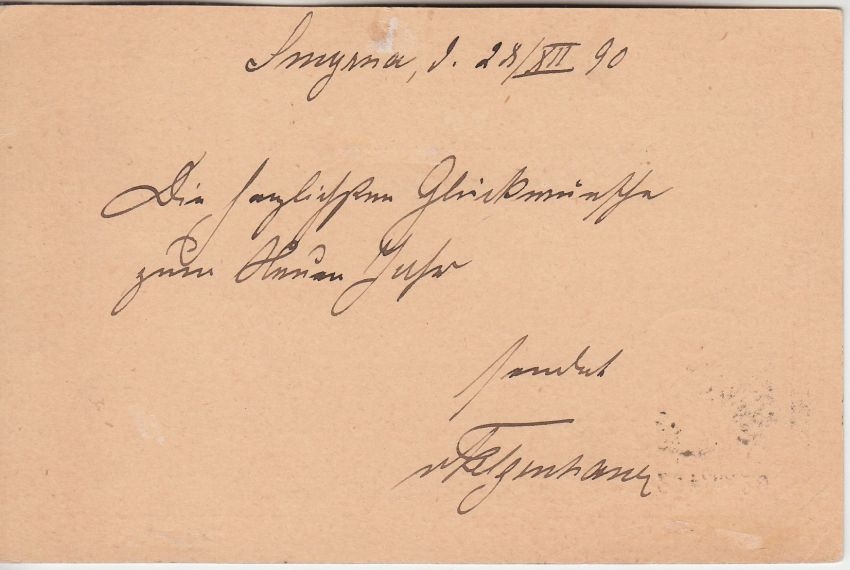 Smyrna, d. 28/XII 90
Die herzlichsten Glückwünsche
zum Neuen Jahr
sendet